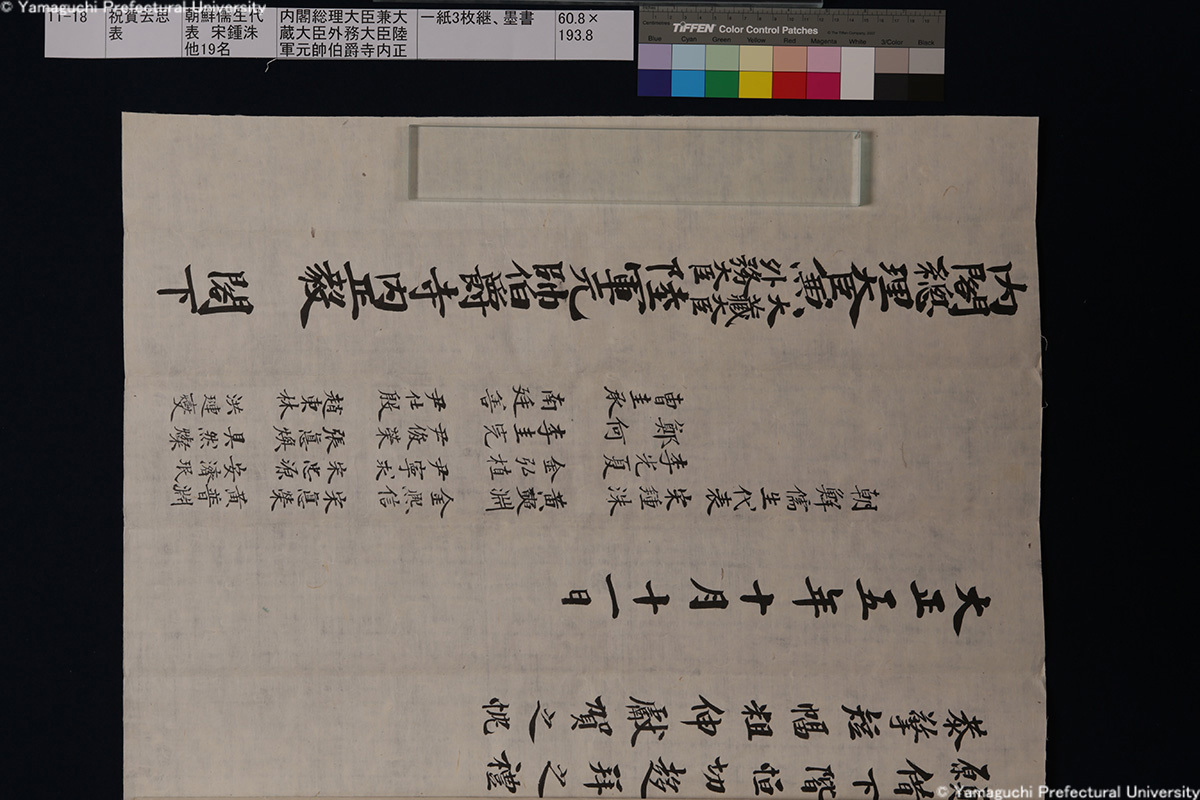 © Yamaguchi Prefectural University
11-18
祝賀去思表
朝鮮儒生代表 宋鍾洙他19名
内閣総理大臣兼大蔵大臣外務大臣陸軍元帥伯爵寺内正
一紙3枚継、墨書
60.8×193.8
TIFFEN Color Control Patches
© The Tiffen Company, 2007
Centimetres
Blue Cyan Green Yellow Red Magenta White 3/Color Black
下階恒切趍拜之禮
恭擎短幅粗伸獻賀之忱
大正五年十月十一日
朝鮮儒生代表 宋鍾洙 黃贊淵 金熙信 宋憙榮 黃普淵
李光夏 金弘植 尹寧求 宋忠源 安濟珉
鄭何 李圭完 尹俊榮 張憙煥 具然燦
曺圭承 南廷善 尹仕殷 趙東林 洪璉燮
内閣總理大臣兼大藏大臣外務大臣陸軍元帥伯爵寺内正毅閣下
© Yamaguchi Prefectural University